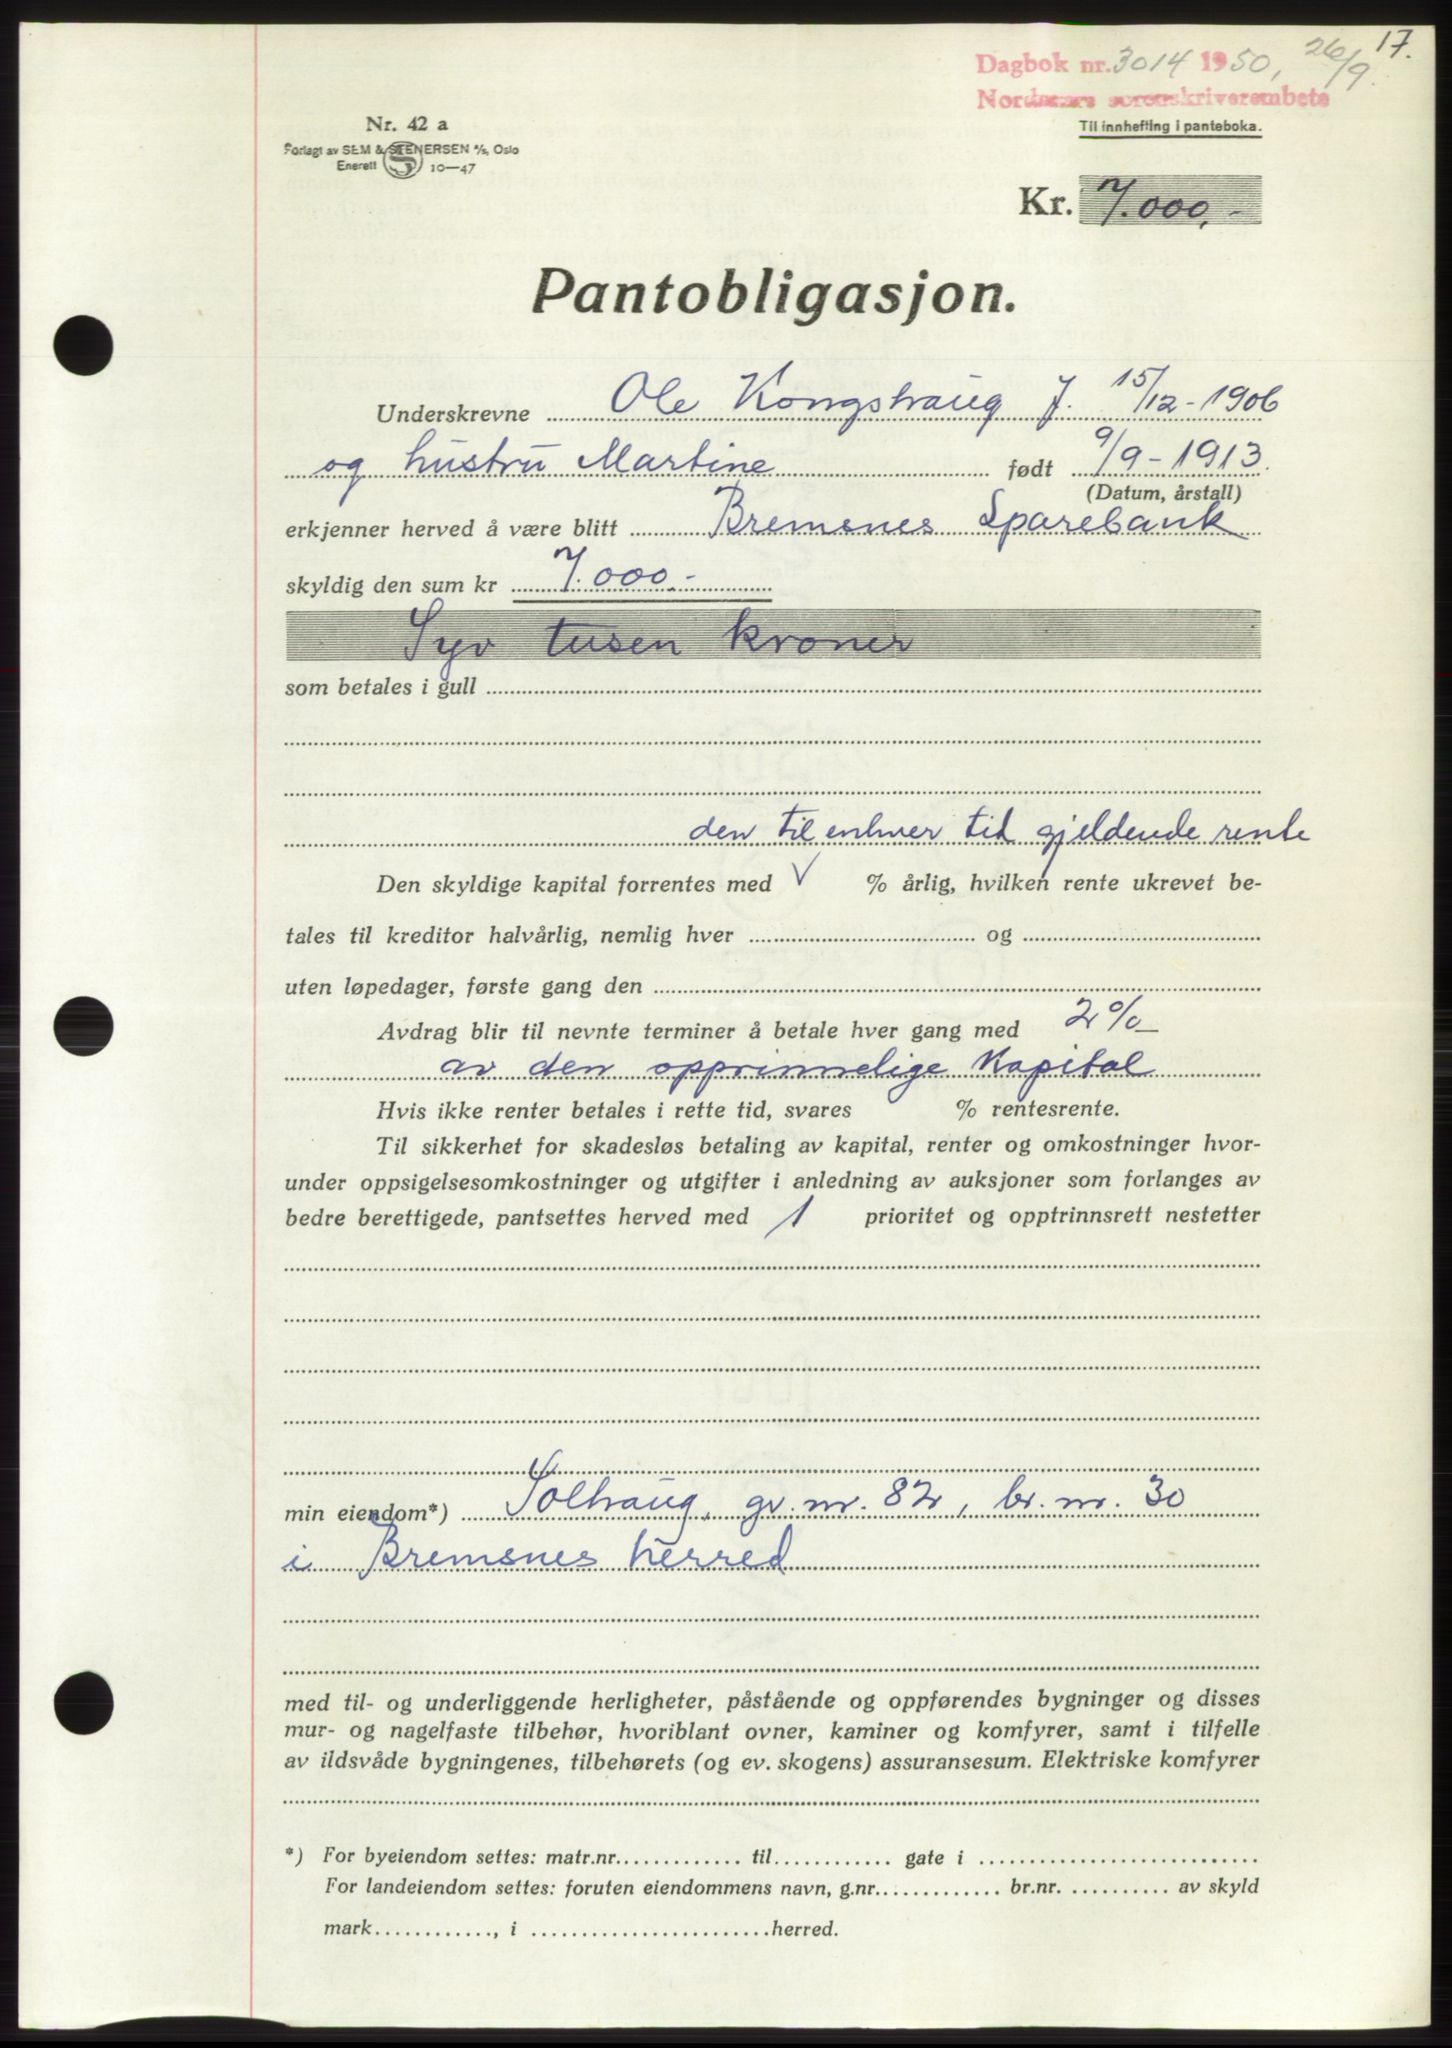 17.
Dagbok nr. 3014 1950, 26/9.
Nordmøre sorenskriverembete
Til innhefting i panteboka.
Nr. 42 a
Forlagt av SEM & STENERSEN A/S, Oslo
Enerett 10—47
Kr. 7.000,-
Pantobligasjon.
Underskrevne Ole Kongshaug f. 15/12-1906
og hustru Martine født 9/9-1913.
(Datum, årstall)
erkjenner herved å være blitt Bremsnes Sparebank
skyldig den sum kr 7.000.-
Syv tusen kroner
som betales i gull
den til enhver tid gjeldende rente
Den skyldige kapital forrentes med √ % årlig, hvilken rente ukrevet be-
tales til kreditor halvårlig, nemlig hver og
uten løpedager, første gang den
Avdrag blir til nevnte terminer å betale hver gang med 2%
av den opprinnelige Kapital
Hvis ikke renter betales i rette tid, svares % rentesrente.
Til sikkerhet for skadesløs betaling av kapital, renter og omkostninger hvor-
under oppsigelsesomkostninger og utgifter i anledning av auksjoner som forlanges av
bedre berettigede, pantsettes herved med 1 prioritet og opptrinnsrett nestetter
min eiendom*) Solhaug, gr. nr. 82, br. nr. 30
i Bremsnes herred
med til- og underliggende herligheter, påstående og oppførendes bygninger og disses
mur- og nagelfaste tilbehør, hvoriblant ovner, kaminer og komfyrer, samt i tilfelle
av ildsvåde bygningenes, tilbehørets (og ev. skogens) assuransesum. Elektriske komfyrer
*) For byeiendom settes: matr.nr............. til............ gate i ............................
For landeiendom settes: foruten eiendommens navn, g.nr............. br.nr. .......... av skyld
mark............, i ........................herred.